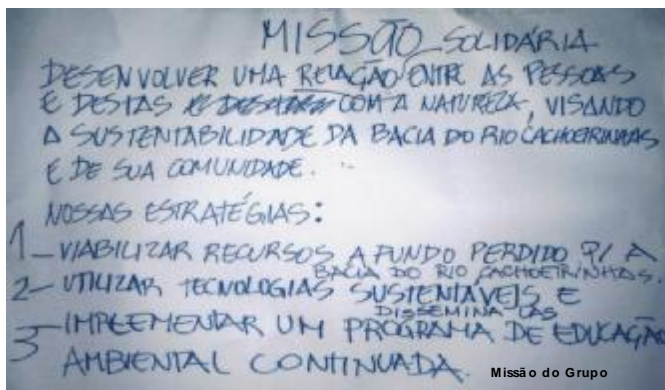 MISSÃO SOLIDÁRIA
DESENVOLVER UMA RELAÇÃO ENTRE AS PESSOAS
E DESTAS COM A NATUREZA, VISANDO
A SUSTENTABILIDADE DA BACIA DO RIO CACHOEIRINHAS
E DE SUA COMUNIDADE.
NOSSAS ESTRATÉGIAS:
1 - VIABILIZAR RECURSOS A FUNDO PERDIDO P/ A
BACIA DO RIO CACHOEIRINHAS.
2 - UTILIZAR TECNOLOGIAS SUSTENTÁVEIS E
DISSEMINA-LAS
3 - IMPLEMENTAR UM PROGRAMA DE EDUCAÇÃO
AMBIENTAL CONTINUADA.
Missão do Grupo